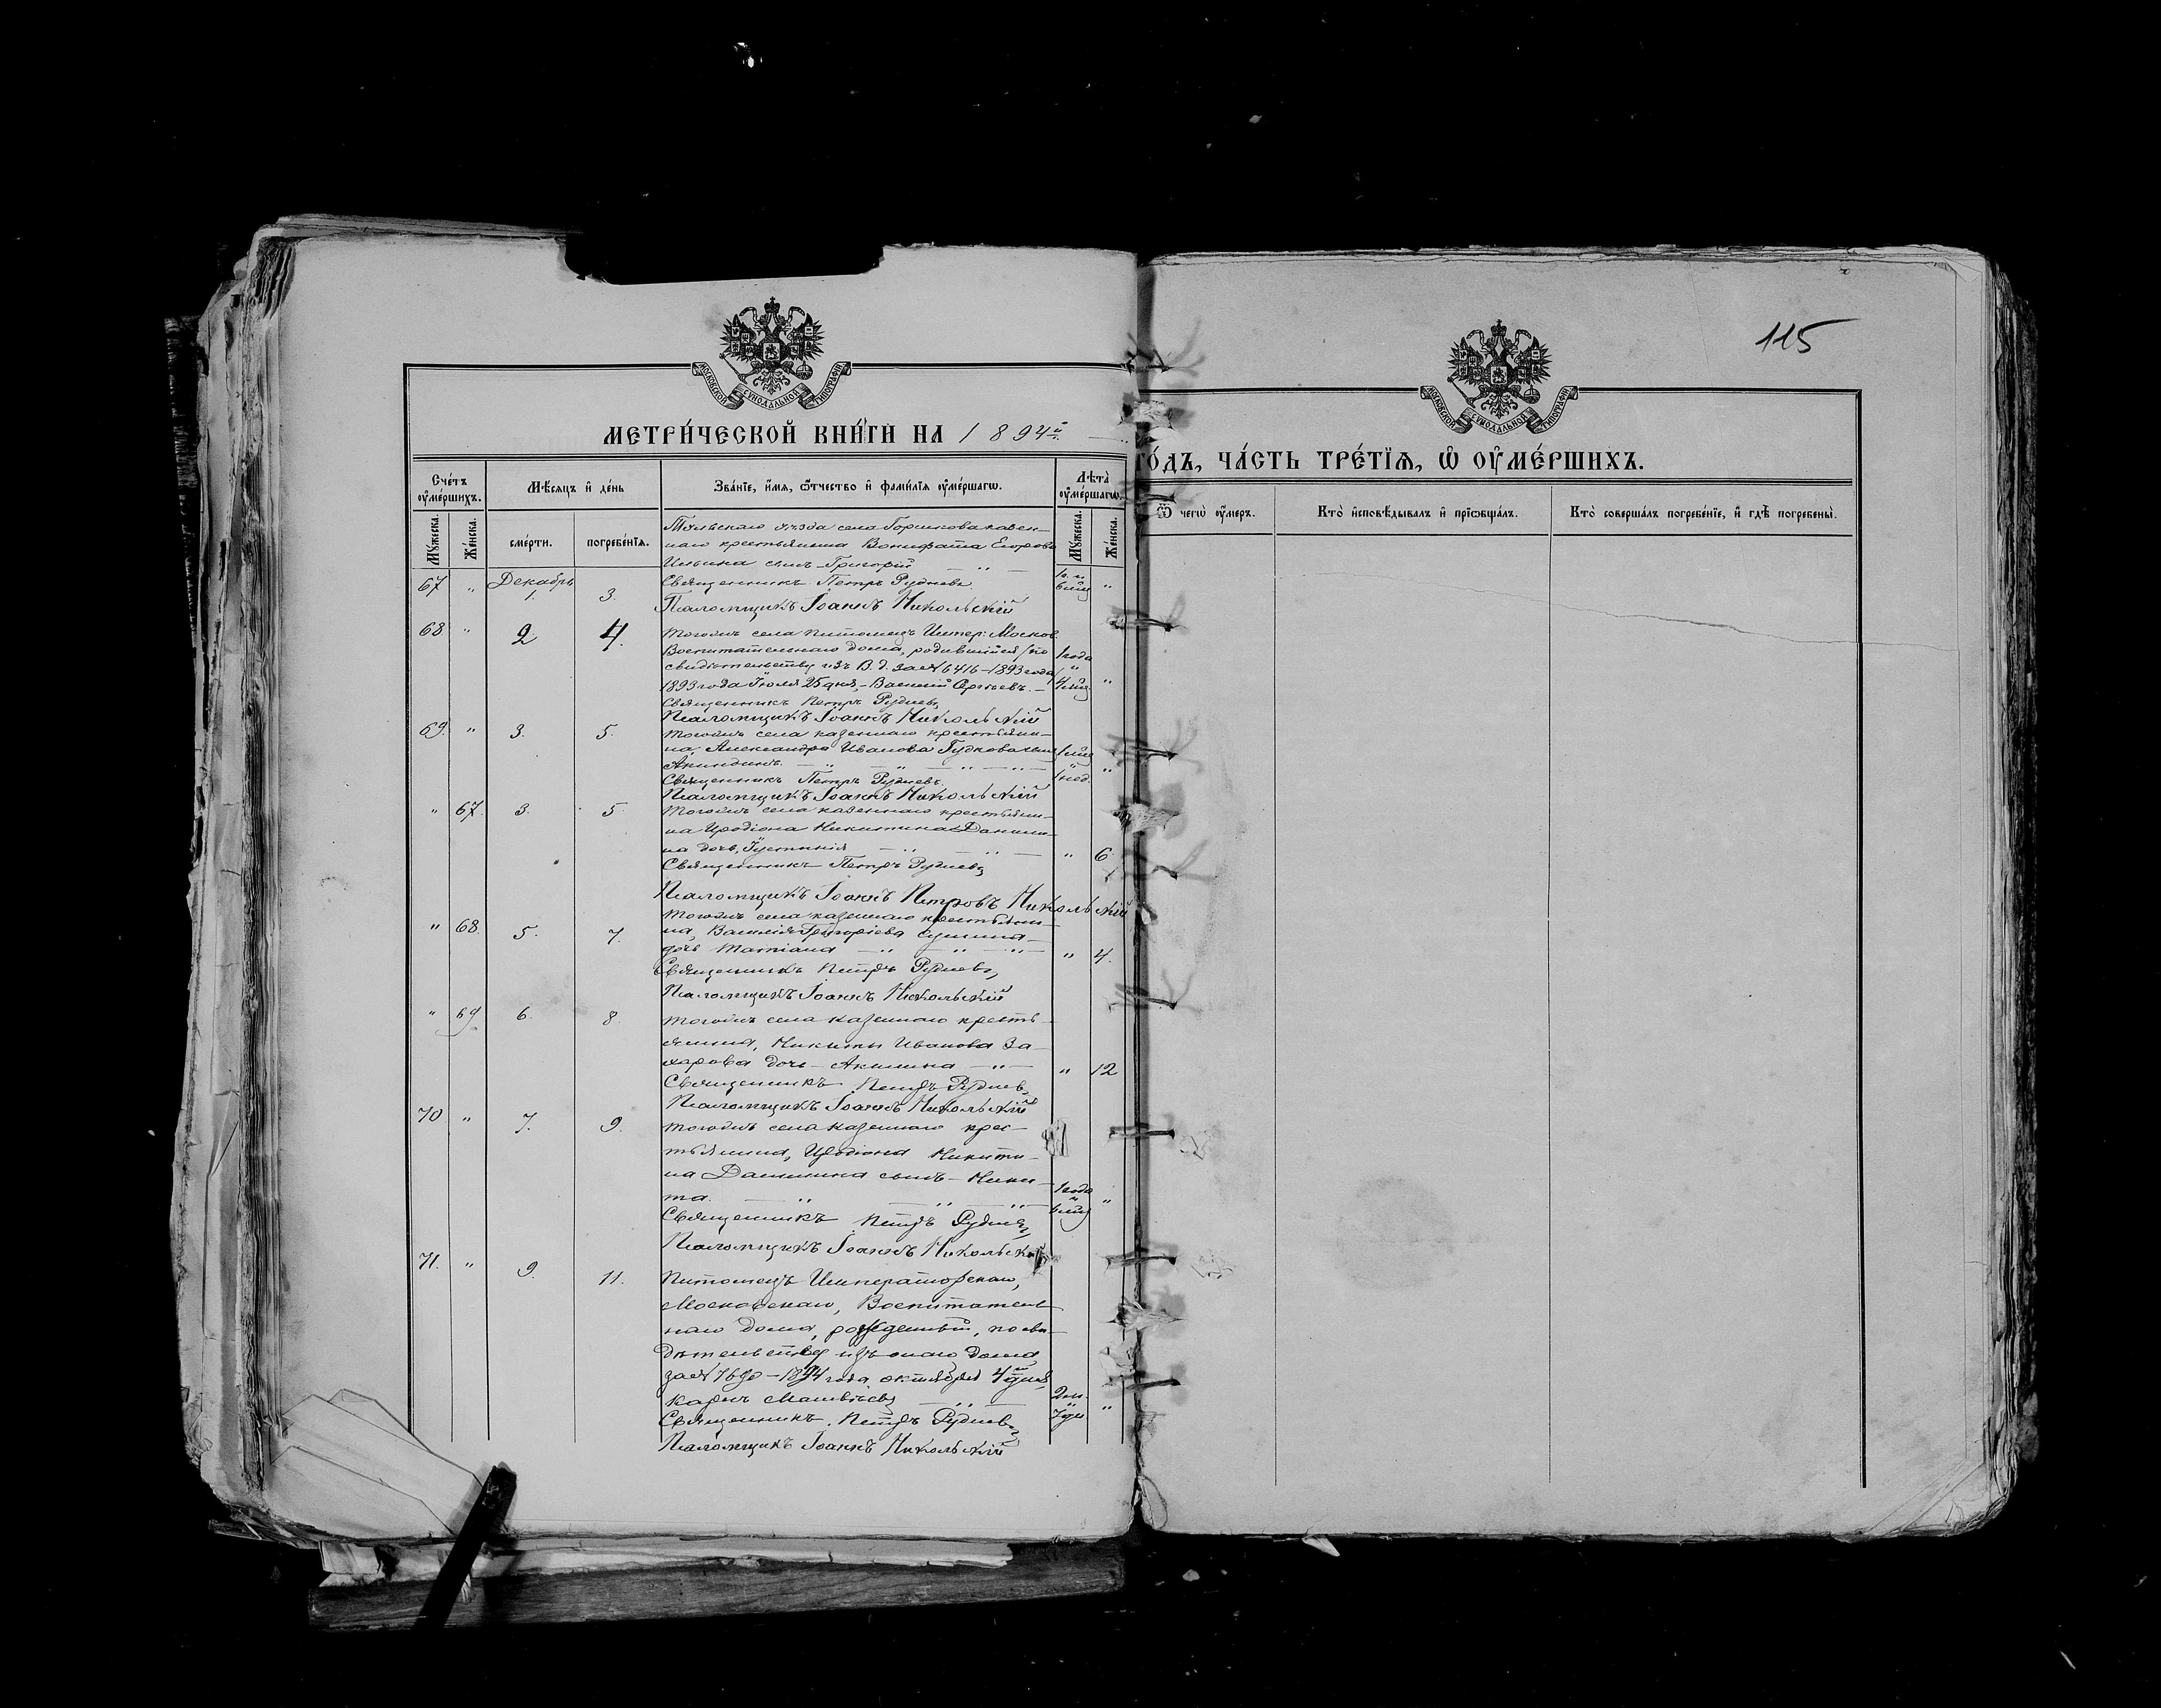 115
МОСКОВСКОЙ СѴНОДАЛЬНОЙ ТИПОГРАФІИ
МОСКОВСКОЙ СѴНОДАЛЬНОЙ ТИПОГРАФІИ
МЕТРИ́ЧЕСКОЙ КНИ́ГИ НА 1894й
ГО́ДЪ, ЧА́СТЬ ТРЕ́ТІѦ, Ѡ҆ ОУ҆МЕ́РШИХЪ.
Сче́тъ оу҆ме́ршихъ.
Мѣ́сяцъ и҆ де́нь
Зва́нїе, и҆́мя, ѻ҆́тчество и҆ фамѝлїя оу҆ме́ршагѡ.
Лѣ́та оу҆ме́ршагѡ.
Ѿ чегѡ̀ оу҆́меръ.
Кто̀ и҆сповѣ́дывалъ и҆ прїѡбща́лъ.
Кто̀ соверша́лъ погребе́нїе, и҆ гдѣ̀ погребены̀.
Мꙋ́жеска.
Же́нска.
сме́рти.
погребе́нїя.
Мꙋ́жеска.
Же́нска.
Тульскаго уѣзда села Горшкова казен-
наго крестьянина Вонифата Егорова
Ильина сынъ Григорій
67 " Декабрь 1. 3. Священникъ Петръ Рудневъ "
Псаломщикъ Іоаннъ Никольскій
68 " 2. 4. Тогожъ села питомецъ Импер: Москов.
Воспитательнаго дома, родившійся /по 1 года
свидѣтельству изъ В. д. за № 6416 – 1893 года/ "
1893 года Іюля 25 дня, – Василій Сергѣевъ. – 4 мѣс "
Священникъ Петръ Рудневъ
Псаломщикъ Іоаннъ Никольскій
69. " 3. 5. Тогожъ села казеннаго крестьяни-
на, Александра Иванова Гудкова сынъ 1 мѣс
Акиндинъ. — " — " — " — " "
Священникъ Петръ Рудневъ 1 нед.
Псаломщикъ Іоаннъ Никольскій
" 67. 3. 5. Тогожъ села казеннаго крестьяни-
на Иродіона Никитина Данши-
на дочь, Іустинія — " — " — " 6
Священникъ Петръ Рудневъ
Псаломщикъ Іоаннъ Петровъ Никольскій
" 68. 5. 7. Тогожъ села казеннаго крестьяни-
на, Василія Григоріева
дочь Татіана — " — " — " " 4.
Священникъ Петръ Рудневъ
Псаломщикъ Іоаннъ Никольскій
" 69 6. 8. Тогожъ села казеннаго кресть-
янина, Никиты Иванова За-
харова дочь – Акилина — " — " 12
Священникъ Петръ Рудневъ
Псаломщикъ Іоаннъ Никольскій
70 " 7. 9. Тогожъ села казеннаго крес-
тьянина, Иродіона Никити-
на Даншина сынъ – Ники-
та. — " — " — " 1 года " 6 мѣс "
Священникъ Петръ Рудневъ
Псаломщикъ Іоаннъ Никольскій
71. " 9. 11. Питомецъ Императорскаго,
Московскаго, Воспитатель-
наго дома, рожденный, по сви-
дѣтельству изъ онаго дома
за № – 1894 года, октября 4го дня,
Карпъ Матвѣевъ — " — 2 м. "
Священникъ Петръ Рудневъ
Псаломщикъ Іоаннъ Никольскій